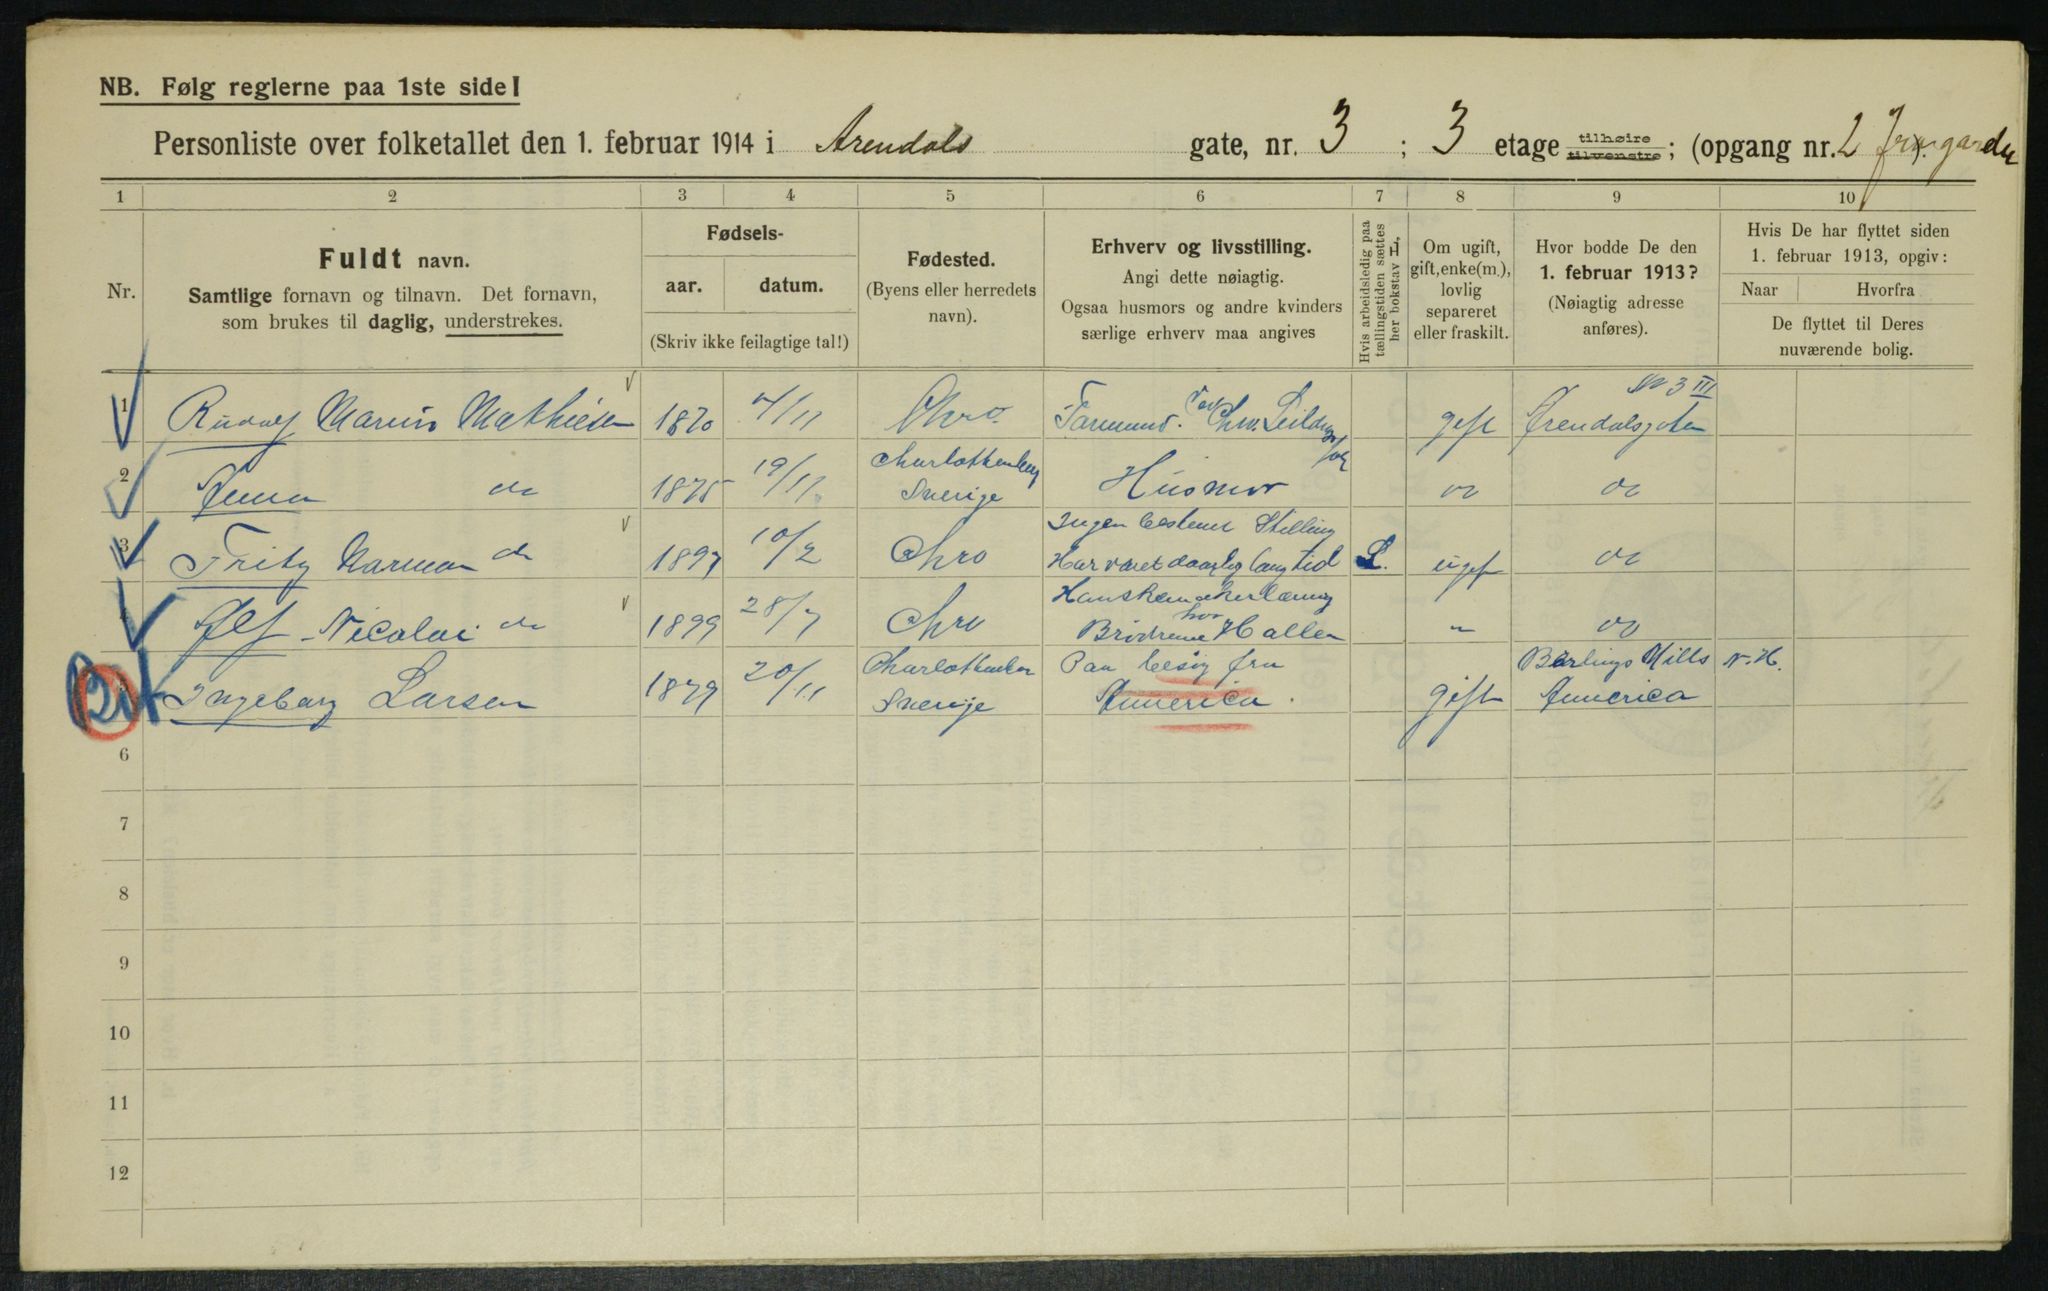 NB. Følg reglerne paa 1ste side!
Personliste over folketallet den 1. februar 1914 i Arendals gate, nr. 3 ; 3 etage tilhøire tilvenstre ; (opgang nr. 2
1 2 3 4 5 6 7 8 9 10
Nr.
Fuldt navn.
Samtlige fornavn og tilnavn. Det fornavn,
som brukes til daglig, understrekes.
Fødsels-
aar. datum.
(Skriv ikke feilagtige tal!)
Fødested.
(Byens eller herredets
navn).
Erhverv og livsstilling.
Angi dette nøiagtig.
Ogsaa husmors og andre kvinders
særlige erhverv maa angives
Hvis arbeidsledig paa
tællingstiden sættes
her bokstav L,
Om ugift,
gift, enke(m.),
lovlig
separeret
eller fraskilt.
Hvor bodde De den
1. februar 1913?
(Nøiagtig adresse
anføres).
Hvis De har flyttet siden
1. februar 1913, opgiv:
Naar Hvorfra
De flyttet til Deres
nuværende bolig.
1 Rudolf Marius Mathiesen 1870 4/11 Chra. Formand. ved Chra. gift Arendalsgaten No 3 III
2 Anna do 1875 19/11 Charlottenberg Sverige Husmor do do
3 Fritz Herman do 1897 10/2 Chra Ingen bestemt Stilling
Har været daarlig lang tid L. ugift do
4 Alf Nicolai do 1899 28/7 Chra Hanskemakerlæring
hos Brødrene Hallen " do
5 Ingeborg Larsen 1879 20/11 Charlottenberg Sverige Paa besøg fra
America gift Berlings Mills N. H.
America
6
7
8
9
10
11
12